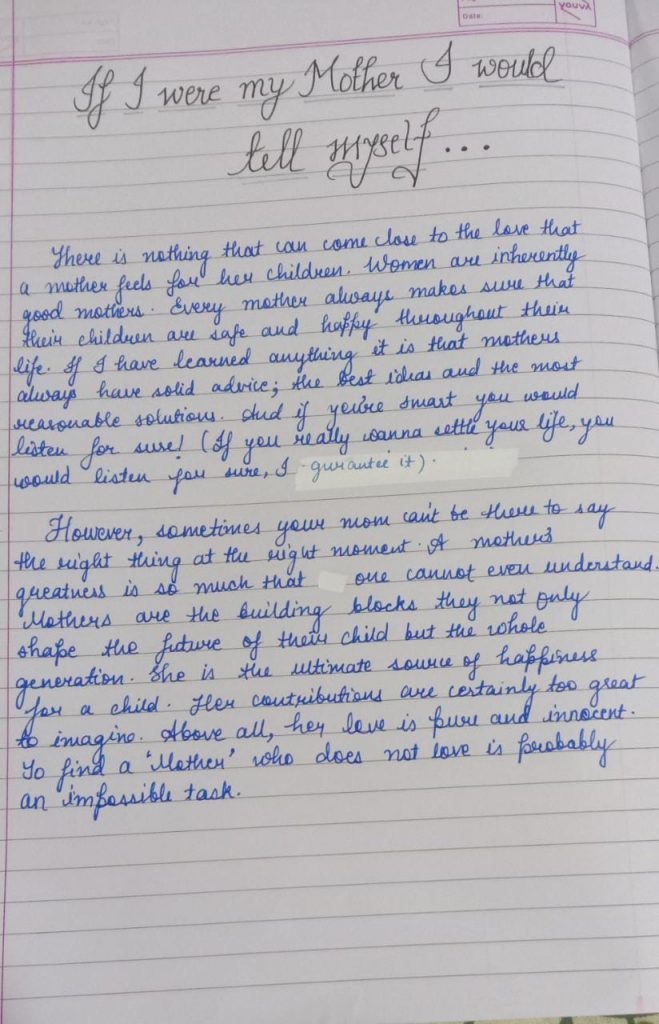 Youva
Date:
If I were my Mother I would
tell myself...
There is nothing that can come close to the love that
a mother feels for her children. Women are inherently
good mothers. Every mother always makes sure that
their children are safe and happy throughout their
life. If I have learned anything it is that mothers
always have solid advice; the best ideas and the most
reasonable solutions. And if you're smart you would
listen for sure! (If you really wanna settle your life, you
would listen for sure, I gurantee it).
However, sometimes your mom can't be there to say
the right thing at the right moment. A mother's
greatness is so much that one cannot even understand.
Mothers are the building blocks they not only
shape the future of their child but the whole
generation. She is the ultimate source of happiness
for a child. Her contributions are certainly too great
to imagine. Above all, her love is pure and innocent.
To find a 'Mother' who does not love is probably
an impossible task.